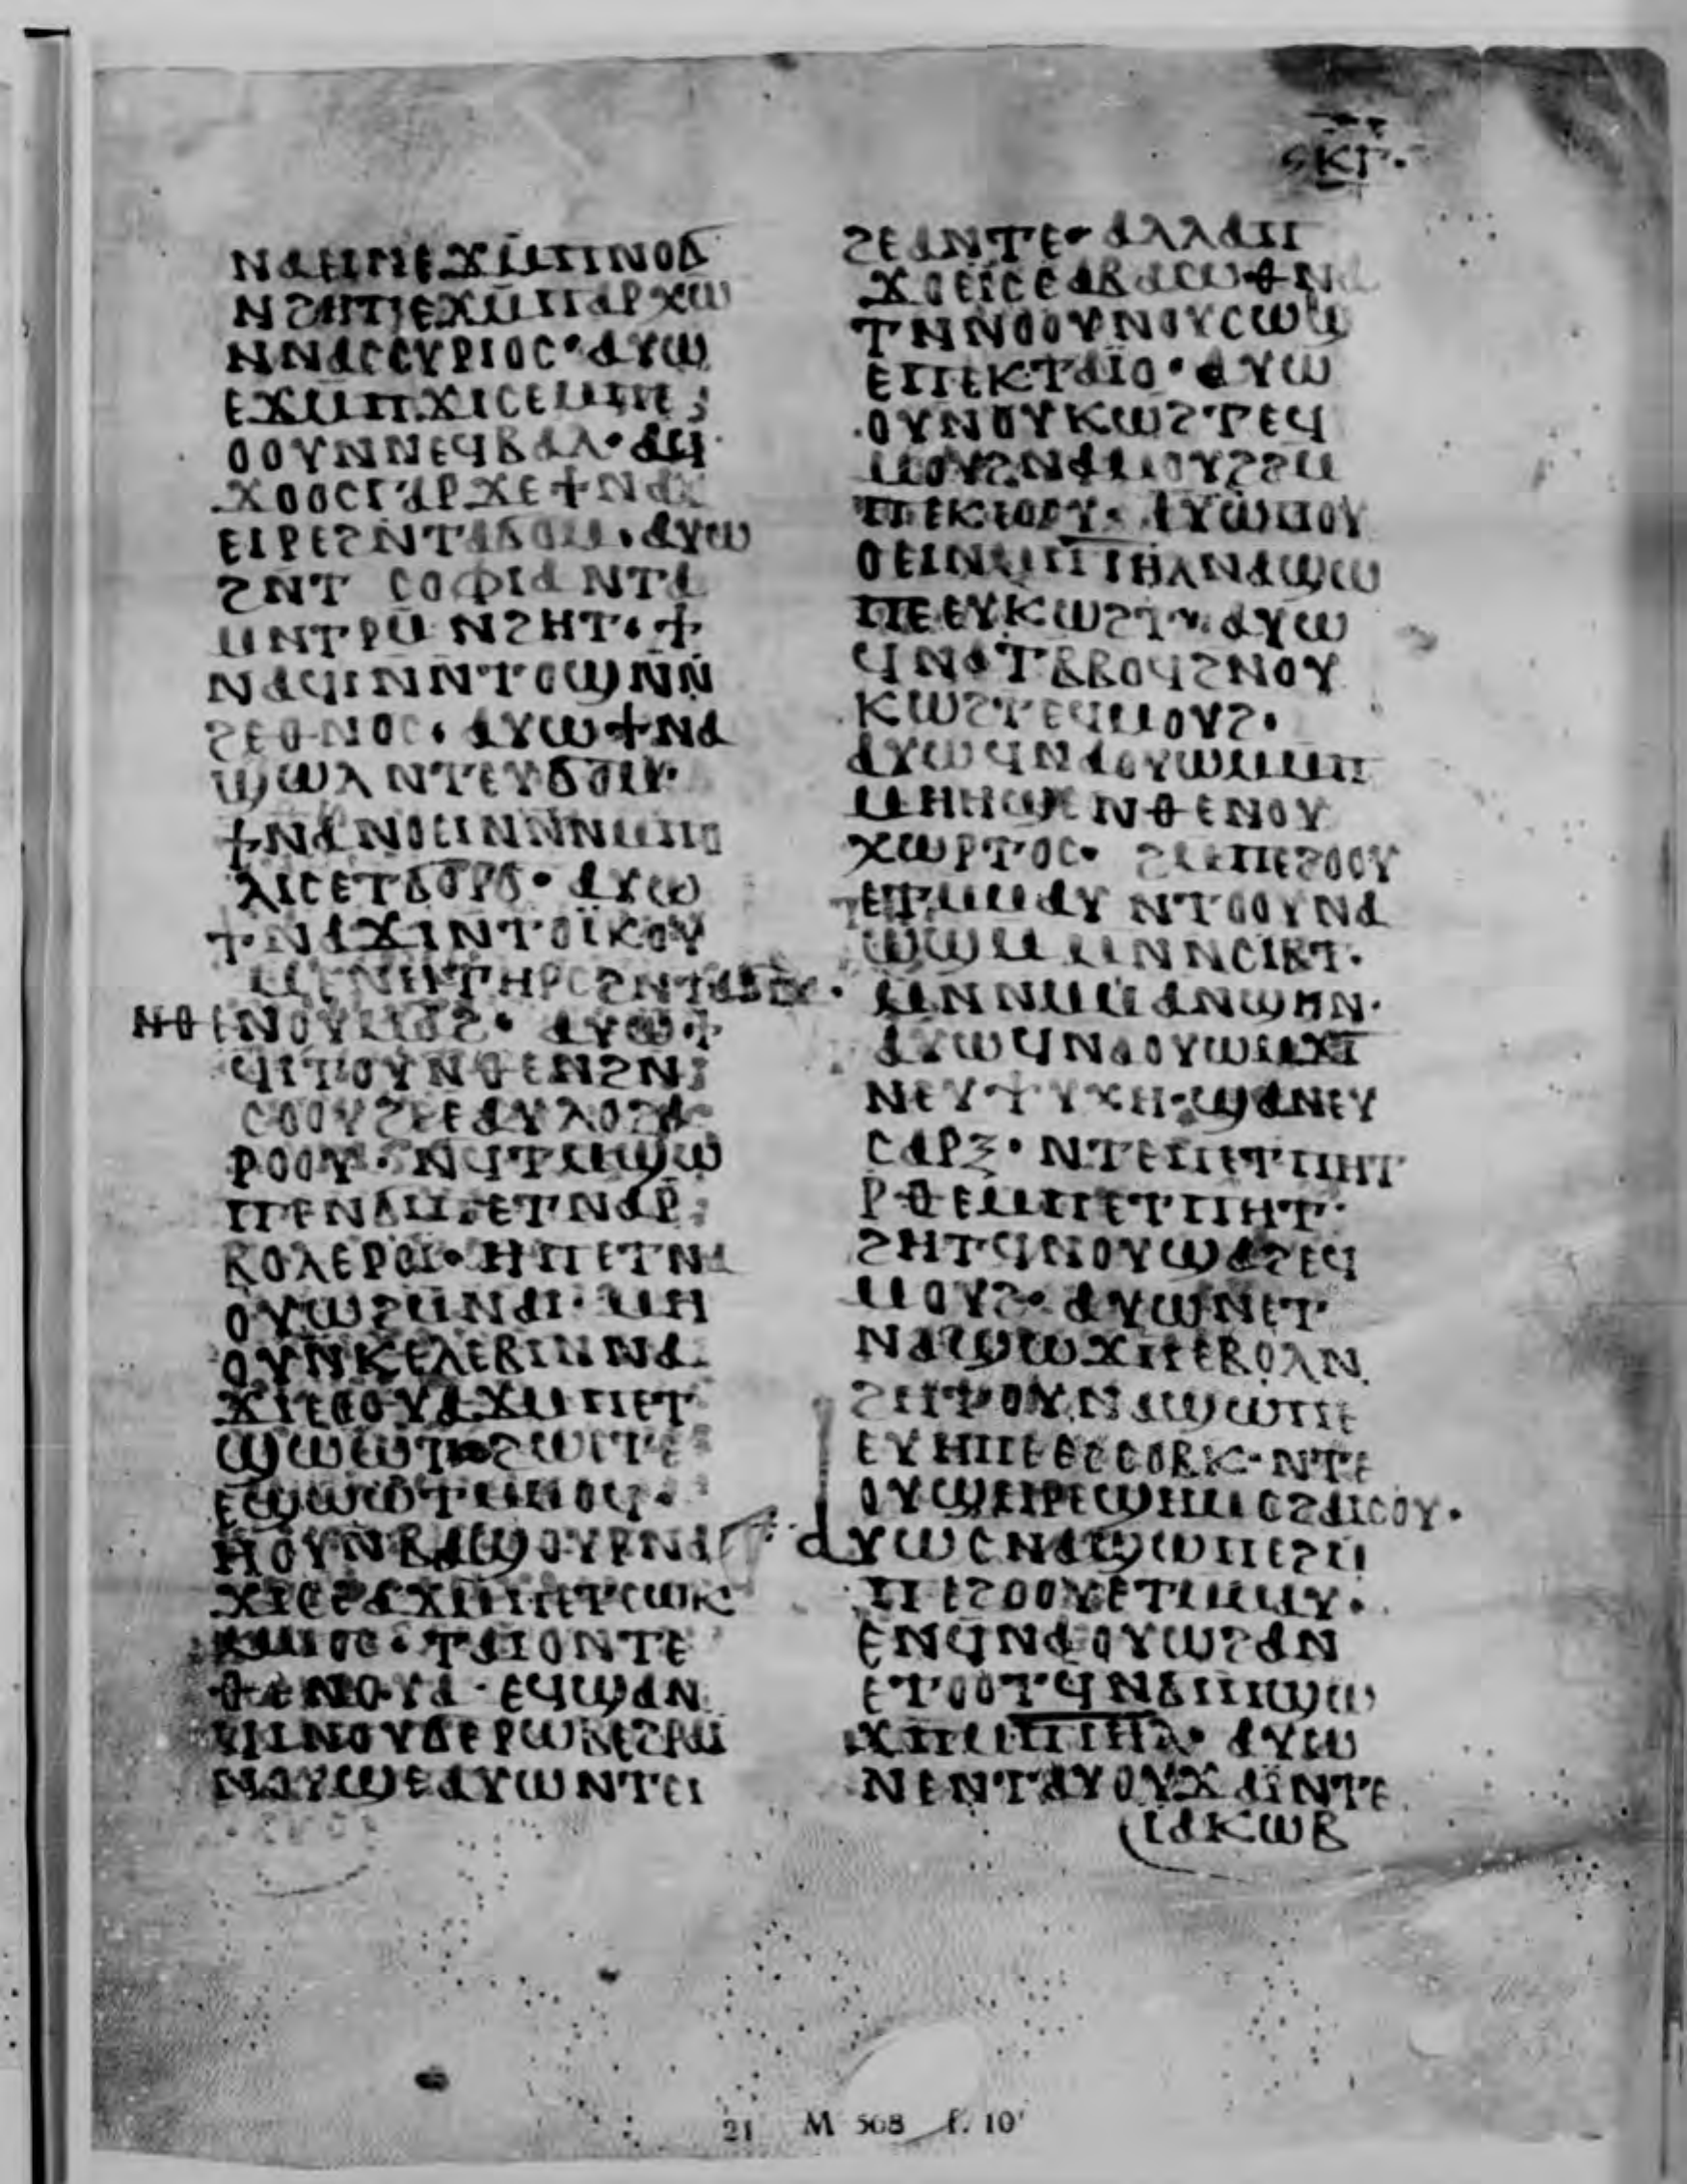 ⲤⲔⲄ·
ⲚⲀⲈⲒⲚⲈⲈϪⲘⲠⲚⲞϬ
ⲚϨⲎⲦⲈϪⲘⲠⲀⲢⲬⲰ
ⲚⲚⲀⲤⲤⲨⲢⲒⲞⲤ· ⲀⲨⲰ
ⲈϪⲘⲠϪⲒⲤⲈⲘⲠⲈ
ⲞⲞⲨⲚⲚⲈϤⲂⲀⲖ· ⲀϤ
ϪⲞⲞⲤⲄⲀⲢϪⲈϮⲚⲀ
ⲈⲒⲢⲈϨⲚⲦⲀϬⲞⲘ· ⲀⲨⲰ
ϨⲚⲦ ⲤⲞⲪⲒⲀ ⲚⲦⲀ
ⲘⲚⲦⲢⲘⲚϨⲎⲦ· Ϯ
ⲚⲀϤⲒⲚⲚⲦⲞϢⲚⲚ
ϨⲈⲐⲚⲞⲤ· ⲀⲨⲰϮⲚⲀ
ϢⲰⲖ ⲚⲦⲈⲨϬⲞⲘ·
ϮⲚⲀⲚⲞⲈⲒⲚⲚⲘⲠⲞ
ⲖⲒⲤⲈⲦϬⲞⲢϬ· ⲀⲨⲰ
ϮⲚⲀϪⲒⲚⲦⲞⲒⲔⲞⲨ
ⲘⲈⲚⲎⲦⲎⲢⲤϨⲚⲦⲀϬⲒϪ·
ⲚⲐⲈⲚⲞⲨⲘⲀϨ· ⲀⲨⲰϮ
ϤⲒⲦⲞⲨⲚⲐⲈⲚϨⲚ
ⲤⲞⲞⲨϨⲈⲈⲀⲨⲖⲞϬ
ⲢⲞⲞⲨ· ⲚϤⲦⲘϢⲰ
ⲠⲈⲚϬⲒⲠⲈⲦⲚⲀⲢ
ⲂⲞⲖⲈⲢⲞⲒ· ⲎⲠⲈⲦⲚⲀ
ⲞⲨⲰϨⲘⲚⲀⲒ· ⲘⲎ
ⲞⲨⲚⲔⲈⲖⲈⲂⲒⲚⲚⲀ
ϪⲒⲈⲞⲞⲨⲀϪⲘⲠⲈⲦ
ϢⲰⲰⲦⲚϨⲎⲦⲤ
ⲎⲞⲨⲚⲂⲀϢⲞⲨⲢⲚⲀ
ϪⲒⲤⲈⲀϪⲘⲠⲈⲦⲤⲰⲔ
ⲘⲘⲞⲤ· ⲦⲀⲒⲞⲚⲦⲈ
ⲐⲈⲚⲞⲨⲀ ⲈϤϢⲀⲚ
ϤⲒⲚⲞⲨϬⲈⲢⲰⲂⲈϨⲢⲀⲒ
ⲚⲞⲨϢⲈⲀⲨⲰⲚⲦⲈⲒ
ϨⲈⲀⲚⲦⲈ· ⲀⲖⲖⲀⲠ
ϪⲞⲈⲒⲤⲤⲀⲂⲀⲰⲐⲚⲀ
ⲦⲚⲚⲞⲞⲨⲚⲞⲨⲤⲰϢ
ⲈⲠⲈⲔⲦⲀⲒⲞ· ⲀⲨⲰ
ⲞⲨⲚⲞⲨⲔⲰϨⲦⲈϤ
ⲘⲞⲨϨⲚⲀⲘⲞⲨϨϨⲘ
ⲠⲈⲔⲈⲞⲞⲨ· ⲀⲨⲰⲠⲞⲨ
ⲞⲈⲒⲚⲘⲠⲒⲎⲖⲚⲀϢⲰ
ⲠⲈⲈⲨⲔⲰϨⲦ· ⲀⲨⲰ
ϤⲚⲀⲦⲂⲂⲞϤϨⲚⲞⲨ
ⲔⲰϨⲦⲈϤⲘⲞⲨϨ·
ⲀⲨⲰϤⲚⲀⲞⲨⲰⲘⲘⲠ
ⲘⲎⲎϢⲈⲚⲐⲈⲚⲞⲨ
ⲬⲰⲢⲦⲞⲤ· ϨⲘⲠⲈϨⲞⲞⲨ
ⲈⲦⲘⲘⲀⲨ ⲚⲦⲞⲞⲨⲚⲀ
ⲰϢⲘ ⲘⲚⲚⲤⲒⲂⲦ·
ⲘⲚⲚⲘⲘⲀⲚϢⲎⲚ·
ⲀⲨⲰϤⲚⲀⲞⲨⲰⲘϪⲒⲚ
ⲚⲈⲨⲮⲨⲬⲎ·ϢⲀⲚⲈⲨ
ⲤⲀⲢⲜ· ⲚⲦⲈⲠⲈⲦⲠⲎⲦ
ⲢⲐⲈⲘⲠⲈⲦⲠⲎⲦ·
ϨⲎⲦϤⲚⲞⲨϢⲀϨⲈϤ
ⲘⲞⲨϨ· ⲀⲨⲰⲚⲈⲦ
ⲚⲀϢⲰϪⲠⲈⲂⲞⲖⲚ
ϨⲎⲦⲞⲨⲚⲀϢⲰⲠⲈ
ⲈⲨⲎⲠⲈⲈⲤⲤⲞⲂⲔ· ⲚⲦⲈ
ⲞⲨϢⲎⲢⲈϢⲎⲘⲤϨⲀⲒⲤⲞⲨ·
ⲀⲨⲰⲤⲚⲀϢⲰⲠⲈϨⲘ
ⲠⲈϨⲞⲞⲨⲈⲦⲘⲘⲀⲨ·
ⲈⲚϤⲚⲀⲞⲨⲰϨⲀⲚ
ⲈⲦⲞⲞⲦϤⲚϬⲒⲠϢⲰ
ϪⲠⲘⲠⲒⲎⲖ· ⲀⲨⲰ
ⲚⲈⲚⲦⲀⲨⲞⲨϪⲀⲒⲚⲦⲈ
ⲒⲀⲔⲰⲂ
21 M 568 f. 10ʳ